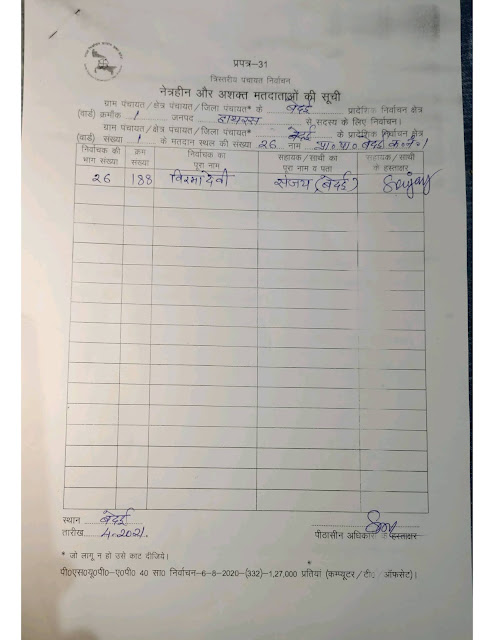 प्रपत्र-31
त्रिस्तरीय पंचायत निर्वाचन
नेत्रहीन और अशक्त मतदाताओं की सूची
ग्राम पंचायत/क्षेत्र पंचायत/जिला पंचायत* के बेदई प्रादेशिक निर्वाचन क्षेत्र
(वार्ड) क्रमाँक 1 जनपद हाथरस से सदस्य के लिए निर्वाचन।
ग्राम पंचायत/क्षेत्र पंचायत/जिला पंचायत* बेदई के प्रादेशिक निर्वाचन क्षेत्र
(वार्ड) संख्या 1 के मतदान स्थल की संख्या 26 नाम प्रा० पा० बेदई क० नं० 1
निर्वाचक की भाग संख्या क्रम संख्या निर्वाचक का पूरा नाम सहायक/साथी का पूरा नाम व पता सहायक/साथी के हस्ताक्षर
26 188 विरमादेवी संजय (बेदई) Sanjay
स्थान बेदई
तारीख 4-2021
पीठासीन अधिकारी के हस्ताक्षर
* जो लागू न हो उसे काट दीजिये।
पी0एस0यू0पी0-ए0पी0 40 सा0 निर्वाचन-6-8-2020-(332)-1,27,000 प्रतियां (कम्प्यूटर/टी0/ऑफसेट)।